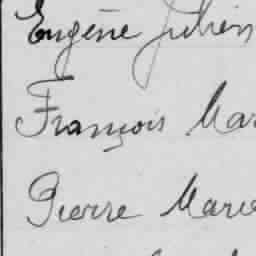 Eugène Julien
François Mar
Pierre Marie